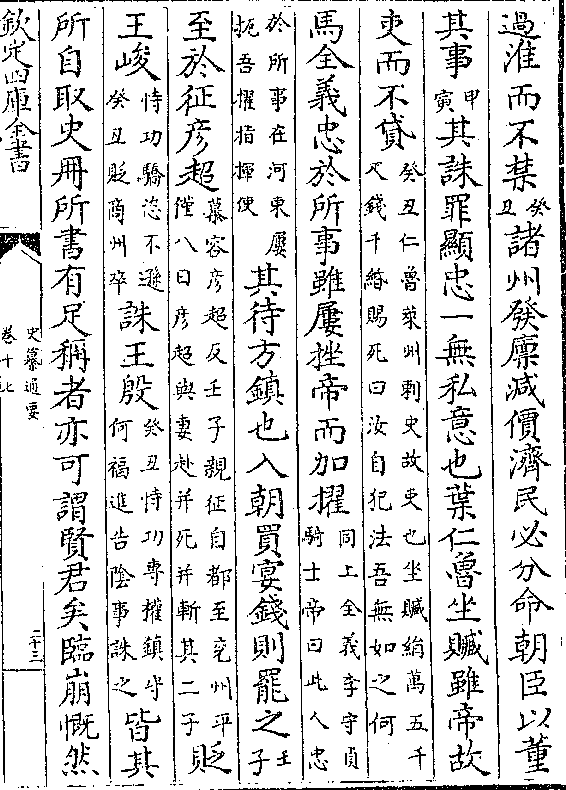 過淮而不禁癸丑諸州發廩減價濟民必分命朝臣以董
其事甲寅其誅罪顯忠一無私意也葉仁魯坐贓雖帝故
吏而不貸癸丑仁魯萊州刺史故吏也坐贓絹萬五千疋錢千緡賜死曰汝自犯法吾無如之何
馬全義忠於所事雖屢挫帝而加擢同上全義李守貞騎士帝曰此人忠
於所事在河東屢扼吾擢指揮使其待方鎮也入朝買宴錢則罷之壬子
至於征彥超慕容彥超反壬子親征自都至兖州平僅八日彥超與妻赴井死并斬其二子貶
王峻恃功驕恣不遜癸丑貶商州卒誅王殷癸丑恃功專權鎮守何福進告陰事誅之皆其
所自取史冊所書有足稱者亦可謂賢君矣臨崩慨然
欽定四庫全書
史纂通要
卷十七
二十三